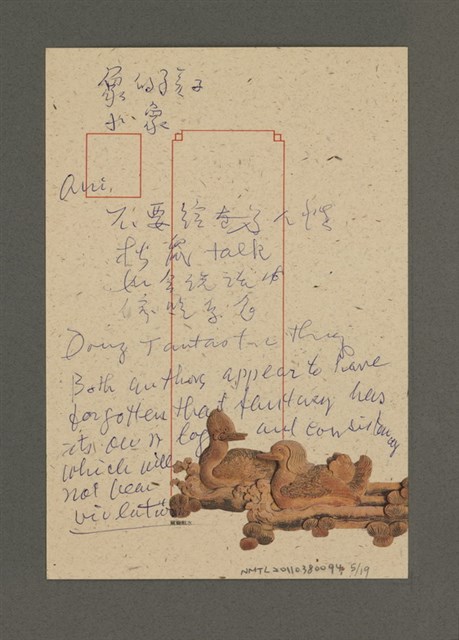 象的孩子
小象
Ani,
不要給 人性
松鼠 talk
如會說話
Doing Fantastic thing
Both authors appear to have
forgotten that fantasy has
its own logic and consistency
which will
not bear
violation
NMTL20110380094 5/19